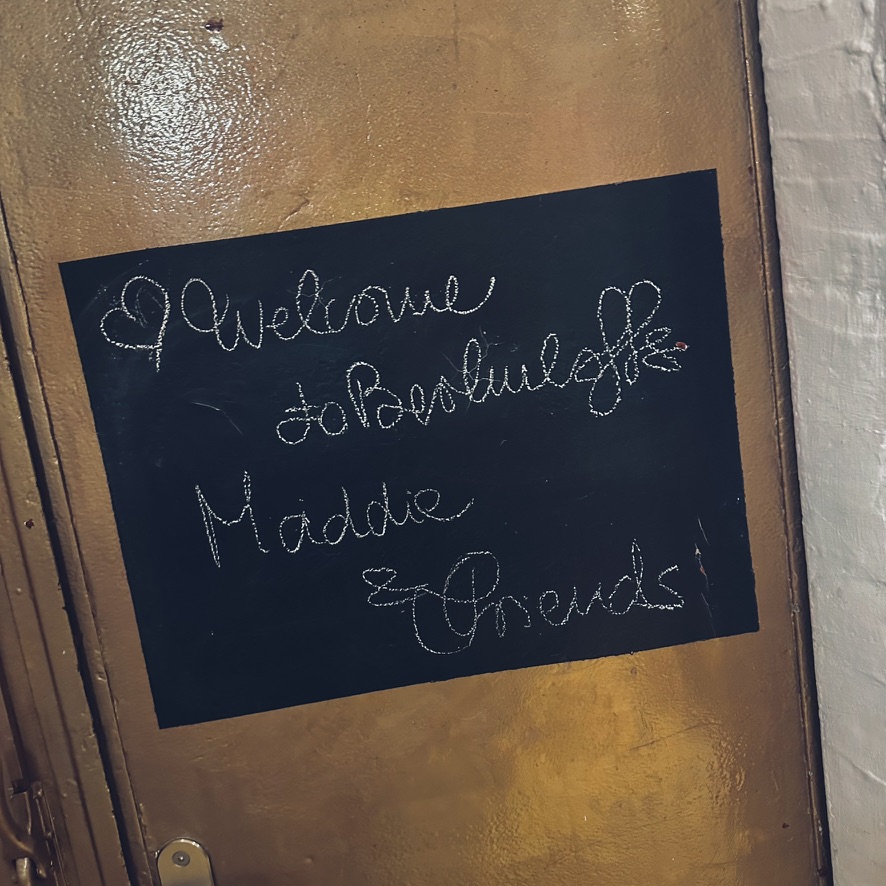 Welcome
to
Maddie
& Friends